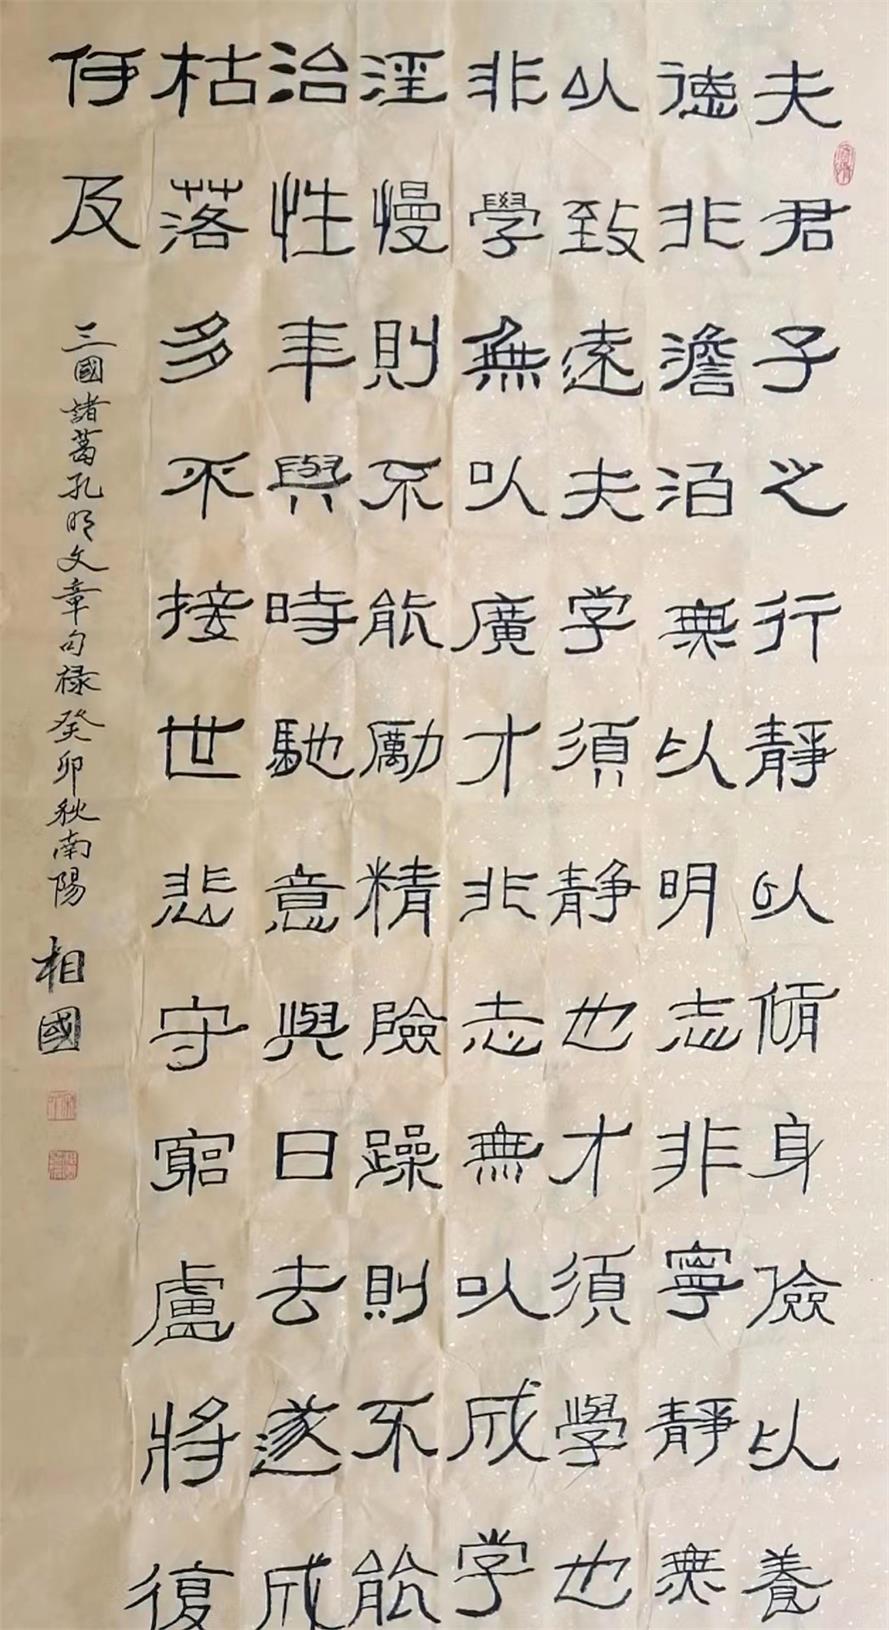 夫君子之行靜以脩身儉以養
德非澹泊無以明志非寧靜無
以致遠夫学須静也才須學也
非學無以廣才非志無以成学
淫慢則不能勵精險躁則不能
治性年與時馳意與日去遂成
枯落多不接世悲守窮盧將復
何及
三國諸葛孔明文章句禄癸卯秋南陽
相國